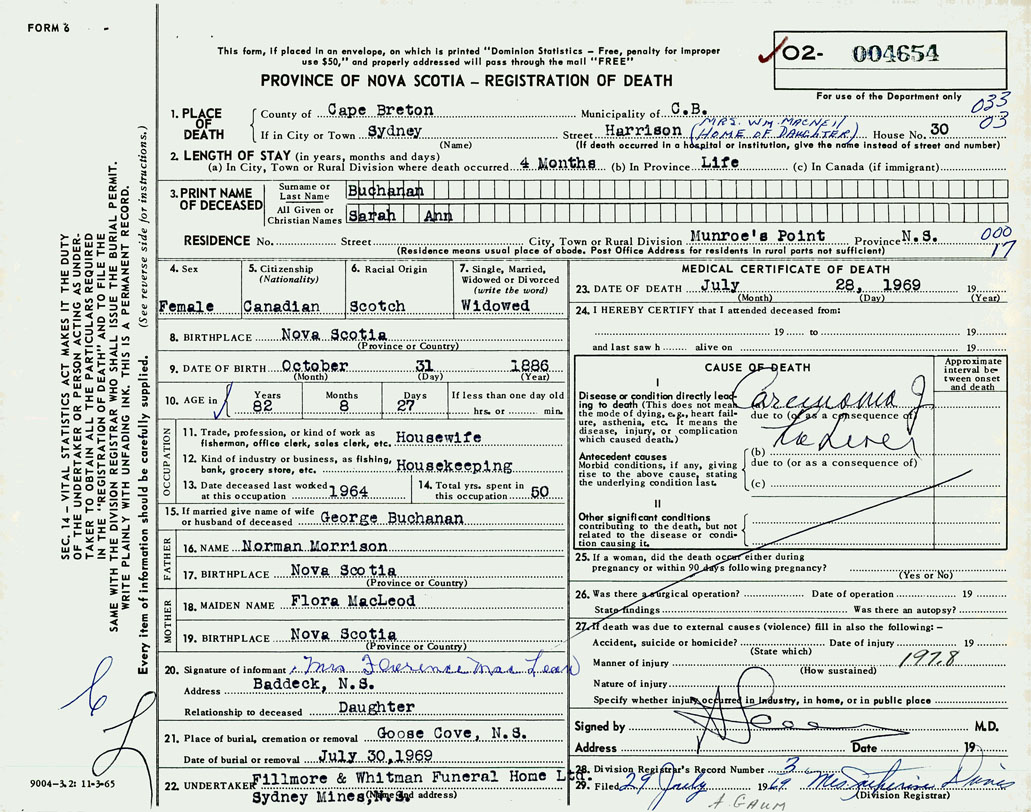 FORM 6
This form, if placed in an envelope, on which is printed "Dominion Statistics – Free, penalty for improper
use $50," and properly addressed will pass through the mail "FREE"
PROVINCE OF NOVA SCOTIA – REGISTRATION OF DEATH
O2- 004654
For use of the Department only
033
03
1. PLACE OF DEATH
County of Cape Breton Municipality of C.B.
If in City or Town Sydney Street Harrison (MRS. WM. MACNEIL HOME OF DAUGHTER) House No. 30
(Name) (If death occurred in a hospital or institution, give the name instead of street and number)
2. LENGTH OF STAY (in years, months and days)
(a) In City, Town or Rural Division where death occurred 4 Months (b) In Province Life (c) In Canada (if immigrant)
3. PRINT NAME OF DECEASED
Surname or Last Name Buchanan
All Given or Christian Names Sarah Ann
RESIDENCE No. Street City, Town or Rural Division Munroe's Point Province N.S.
(Residence means usual place of abode. Post Office Address for residents in rural parts not sufficient)
000
17
4. Sex
Female
5. Citizenship (Nationality)
Canadian
6. Racial Origin
Scotch
7. Single, Married, Widowed or Divorced (write the word)
Widowed
8. BIRTHPLACE Nova Scotia
(Province or Country)
9. DATE OF BIRTH October 31 1886
(Month) (Day) (Year)
10. AGE in Years 82 Months 8 Days 27 If less than one day old hrs. or min.
OCCUPATION
11. Trade, profession, or kind of work as fisherman, office clerk, sales clerk, etc. Housewife
12. Kind of industry or business, as fishing, bank, grocery store, etc. Housekeeping
13. Date deceased last worked at this occupation 1964
14. Total yrs. spent in this occupation 50
15. If married give name of wife or husband of deceased George Buchanan
FATHER
16. NAME Norman Morrison
17. BIRTHPLACE Nova Scotia
(Province or Country)
MOTHER
18. MAIDEN NAME Flora MacLeod
19. BIRTHPLACE Nova Scotia
(Province or Country)
20. Signature of informant Mrs Florence MacLean
Address Baddeck, N.S.
Relationship to deceased Daughter
21. Place of burial, cremation or removal Goose Cove, N.S.
Date of burial or removal July 30,1969
22. UNDERTAKER Fillmore & Whitman Funeral Home Ltd.
Sydney Mines, N.S.
(Name and address)
MEDICAL CERTIFICATE OF DEATH
23. DATE OF DEATH July 28, 1969 19
(Month) (Day) (Year)
24. I HEREBY CERTIFY that I attended deceased from:
19 to 19
and last saw h alive on 19
CAUSE OF DEATH
Approximate interval between onset and death
I
Disease or condition directly leading to death (This does not mean the mode of dying, e.g., heart failure, asthenia, etc. It means the disease, injury, or complication which caused death.)
Carcinoma of
due to (or as a consequence of)
the Liver
Antecedent causes
Morbid conditions, if any, giving rise to the above cause, stating the underlying condition last.
(b)
due to (or as a consequence of)
(c)
II
Other significant conditions contributing to the death, but not related to the disease or condition causing it.
25. If a woman, did the death occur either during
pregnancy or within 90 days following pregnancy?
(Yes or No)
26. Was there a surgical operation? Date of operation 19
State findings Was there an autopsy?
27. If death was due to external causes (violence) fill in also the following:–
Accident, suicide or homicide? Date of injury 19
(State which)
Manner of injury 197.8
(How sustained)
Nature of injury
Specify whether injury occurred in industry, in home, or in public place
Signed by M.D.
Address Date 19
28. Division Registrar's Record Number 3
29. Filed 29 July 1969 Mrs Catherine Davis
(Division Registrar)
A GAUM
SEC. 14 – VITAL STATISTICS ACT MAKES IT THE DUTY
OF THE UNDERTAKER OR PERSON ACTING AS UNDER-
TAKER TO OBTAIN ALL THE PARTICULARS REQUIRED
IN THE "REGISTRATION OF DEATH" AND TO FILE THE
SAME WITH THE DIVISION REGISTRAR WHO SHALL ISSUE THE BURIAL PERMIT.
WRITE PLAINLY WITH UNFADING INK. THIS IS A PERMANENT RECORD.
Every item of information should be carefully supplied. (See reverse side for instructions.)
9004-3.2: 11-3-65